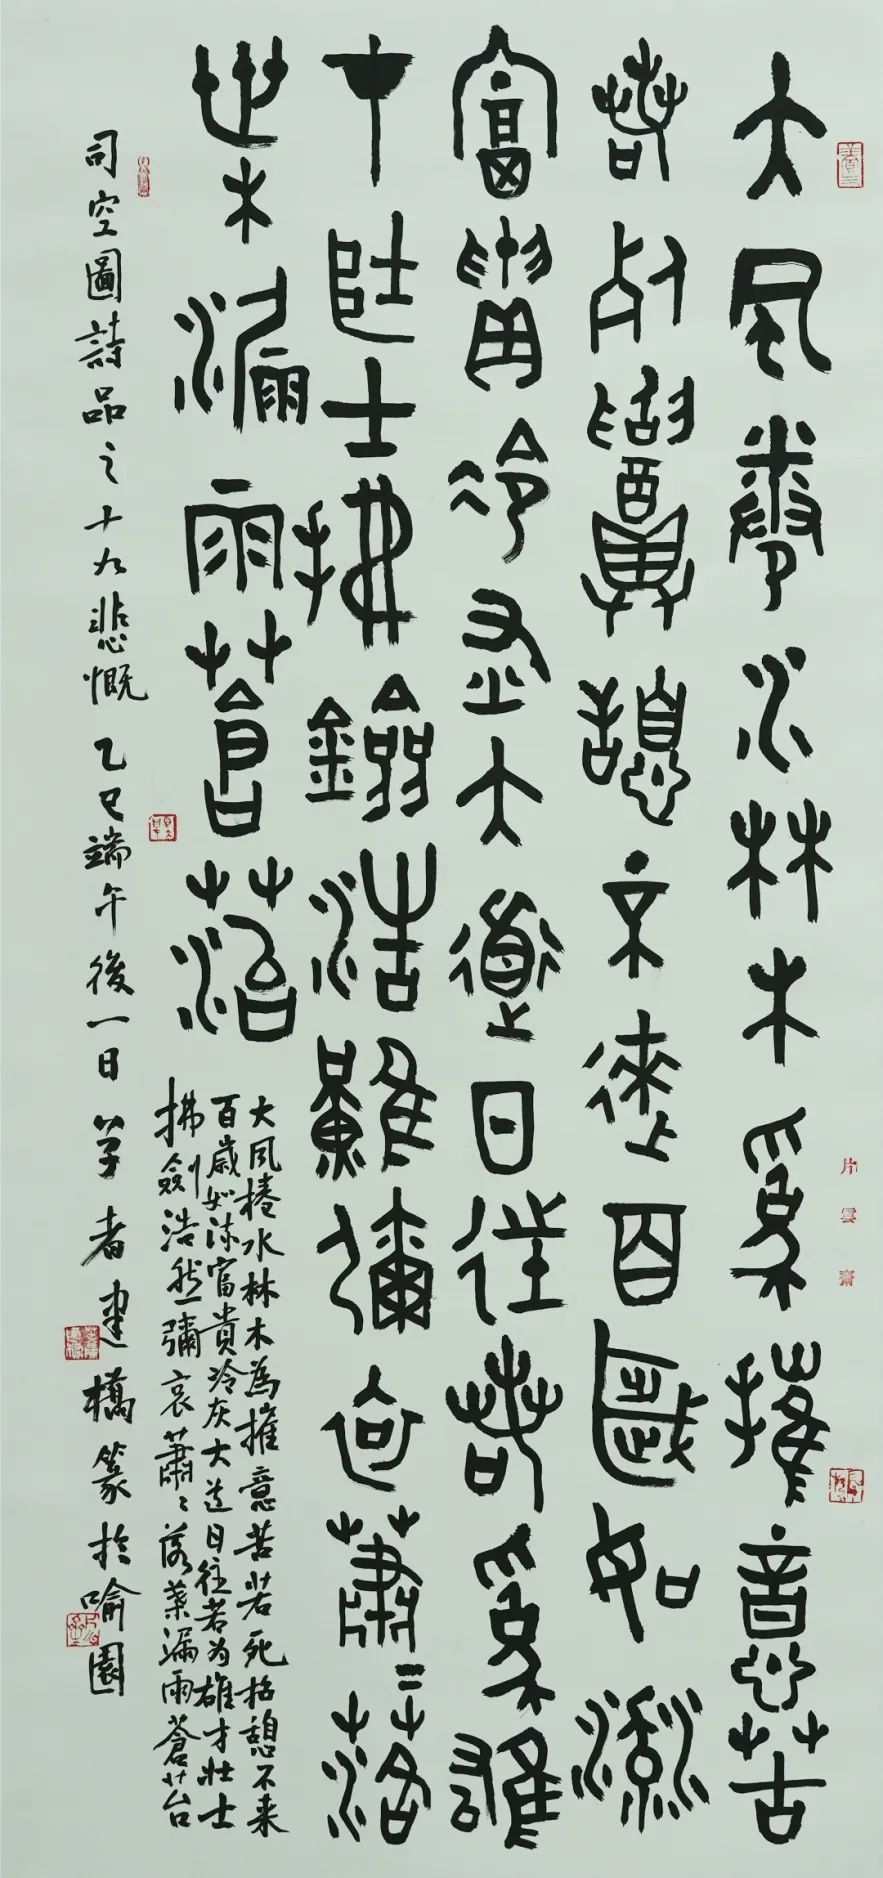 大風卷水林木為摧意苦
若死招憩不來百歲如流
富貴冷灰大道日往若為雄
才壯士拂劍浩然彌哀蕭=落
葉漏雨蒼菭
大風捲水林木為摧意苦若死招憩不来
百歲如流富貴冷灰大道日往若为雄才壯士
拂劍浩然彌哀蕭〻落葉漏雨蒼苔
司空圖詩品之十九悲慨 乙巳端午後一日 者建橋篆於喻園
片雲齋